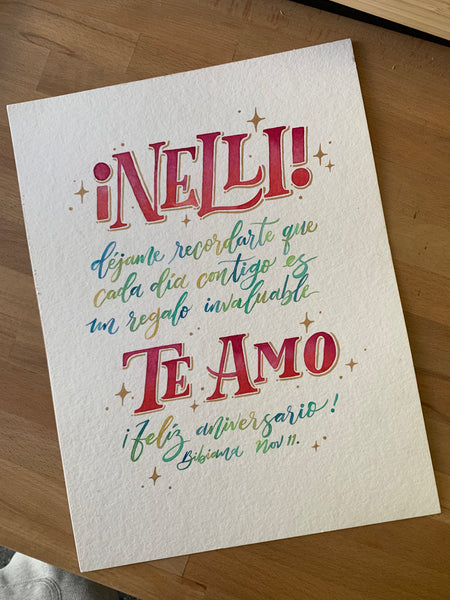 ¡NELLI!
déjame recordarte que
cada día contigo es
un regalo invaluable
TE AMO
¡Feliz aniversario!
Bibiana Nov 11.